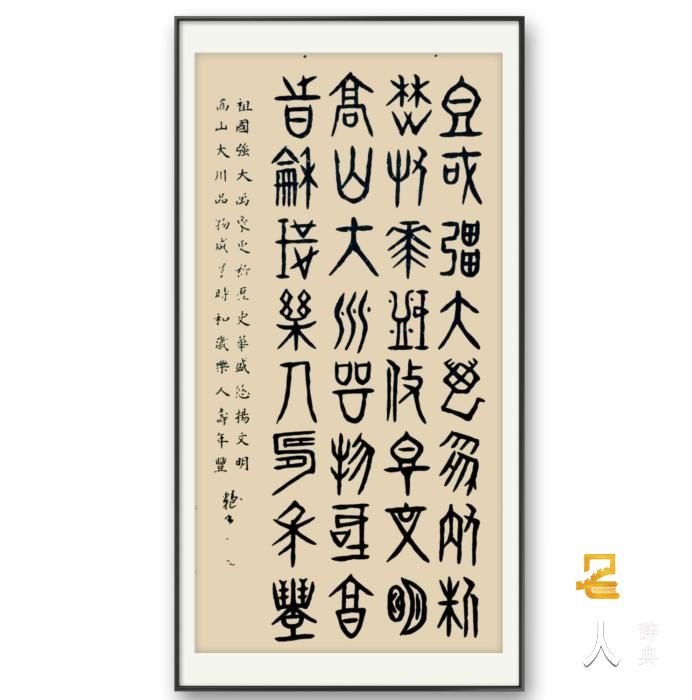 祖國強大萬象更新
歷史華盛悠揚文明
高山大川品物咸亨
時和歲樂人壽年豐
祖國強大萬象更新歷史華盛悠揚文明
高山大川品物咸亨時和歲樂人壽年豐
名人
辞典